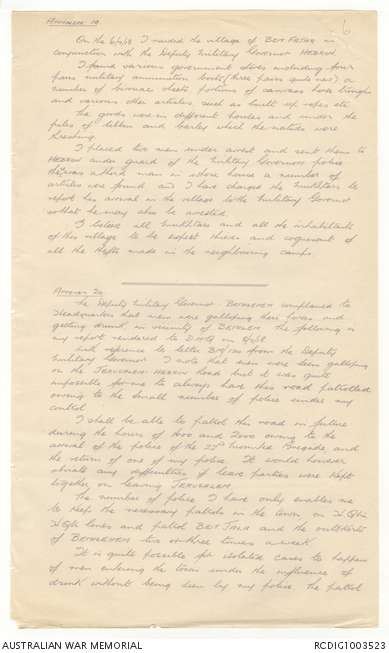 6
Appendix 19.
On the 6/4/18 I raided the village of BEIT FAJAR in
conjunction with the Deputy Military Governor HEBRON
I found various government stores including four
pairs military ammunition boots (three pairs quite new) a
number of bivouac sheets, portions of canvas horse troughs
and various other articles such as built up ropes etc.
The goods were in different houses and under the
piles of and barley which the natives were
threshing.
I placed five men under arrest and sent them to
HEBRON under guard of the Military Governors police
there was another man in whose house a number of
articles were found and I have charged the to
report his arrival in the village to the Military Governor
so that he may also be arrested.
I believe all and all the inhabitants
of this village to be expert thieves and cognisant of
all the thefts made in the neighbouring camps.
Appendix 20
The Deputy Military Governor BETHLEHEM complained to
Headquarters that men were galloping their horses and
getting drunk in vicinity of BETHLEHEM the following is
my report rendered to on
with reference to letter from the Deputy
Military Governor I note that men were seen galloping
on the JERUSALEM HEBRON Road but it was quite
impossible for me to always have this road patrolled
owing to the small number of police under my
control.
I shall be able to patrol this road in future
during the hours of and 2000 owing to the
arrival of the police of the 22nd Mounted Brigade, and
the return of one of my police. It would however
obviate any difficulties if leave parties were kept
together on leaving JERUSALEM.
The number of police I have only enables me
to keep the necessary patrols in the town, on
lines and patrol BEIT JALA and the outskirts
of BETHLEHEM two or three times a week.
It is quite possible for isolated cases to happen
of men entering the town under the influence of
drink without being seen by my police, the patrol
AUSTRALIAN WAR MEMORIAL
RCDIG1003523